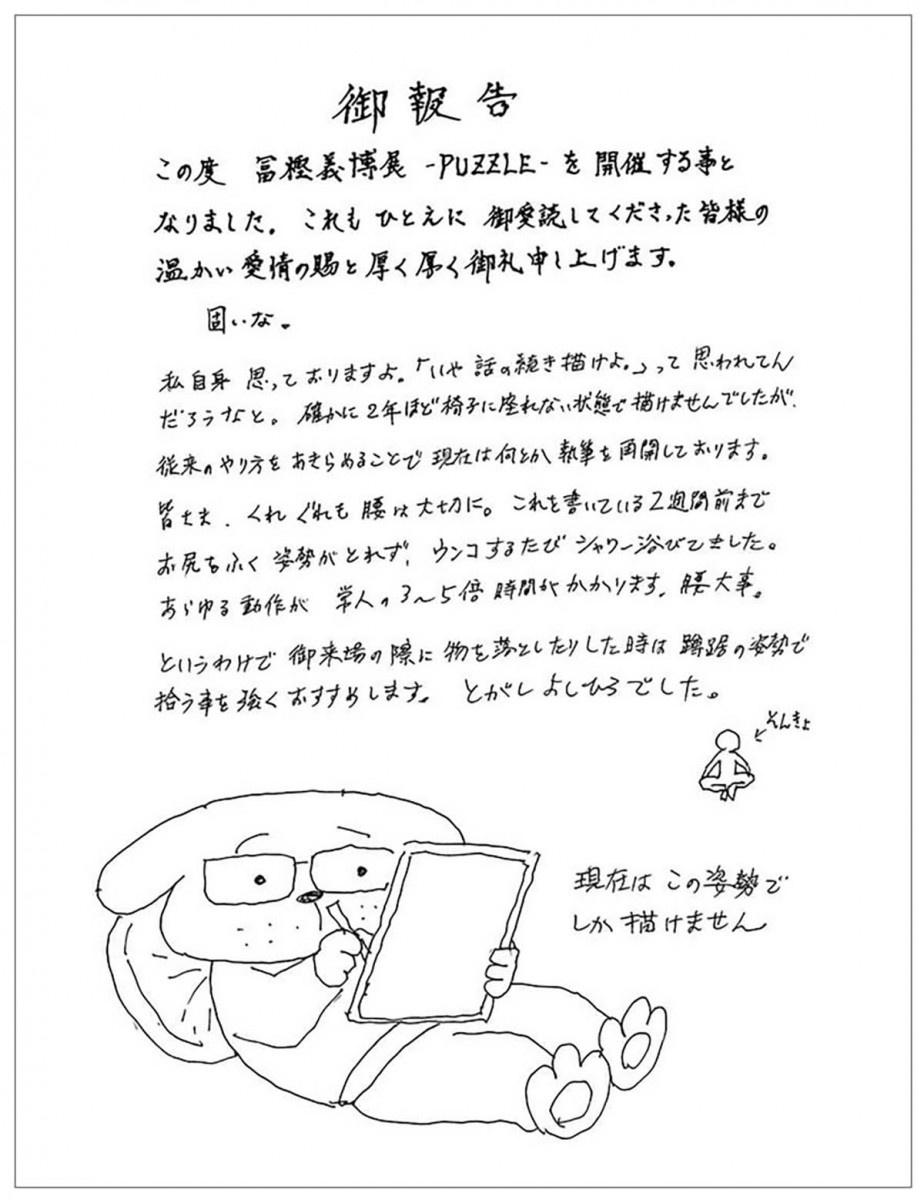 御報告
この度 冨樫義博展 -PUZZLE- を開催する事と
なりました。これもひとえに 御愛読してくださった皆様の
温かい愛情の賜と厚く厚く御礼申し上げます。
固いな。
私自身 思っておりますよ。「いや 話の続き描けよ。」って 思われてん
だろうなと。確かに2年ほど椅子に座れない状態で描けませんでしたが、
従来のやり方をあきらめることで現在は何とか執筆を再開しております。
皆さま、くれぐれも腰は大切に。これを書いている2週間前まで
お尻をふく姿勢がとれず、ウンコするたびシャワー浴びてました。
あらゆる動作が 常人の3〜5倍時間がかかります。腰大事。
というわけで御来場の際に物を落としたりした時は蹲踞の姿勢で
拾う事を強くおすすめします。とがしよしひろでした。
そんきょ
現在はこの姿勢で
しか描けません